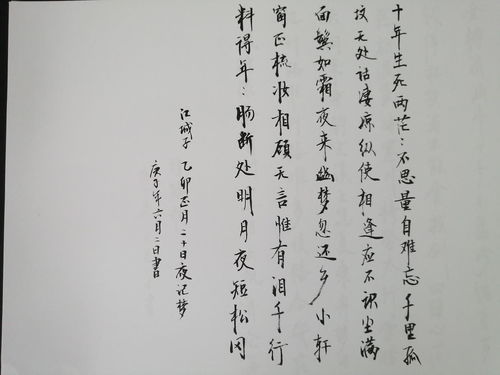 十年生死两茫:不思量自难忘千里孤
坟无处话凄凉纵使相逢应不识尘满
面鬓如霜夜来幽梦忽还乡小轩
窗正梳妆相顾无言惟有泪千行
料得年:肠断处明月夜短松冈
江城子 乙卯正月二十日夜记梦
庚子年六月二日書